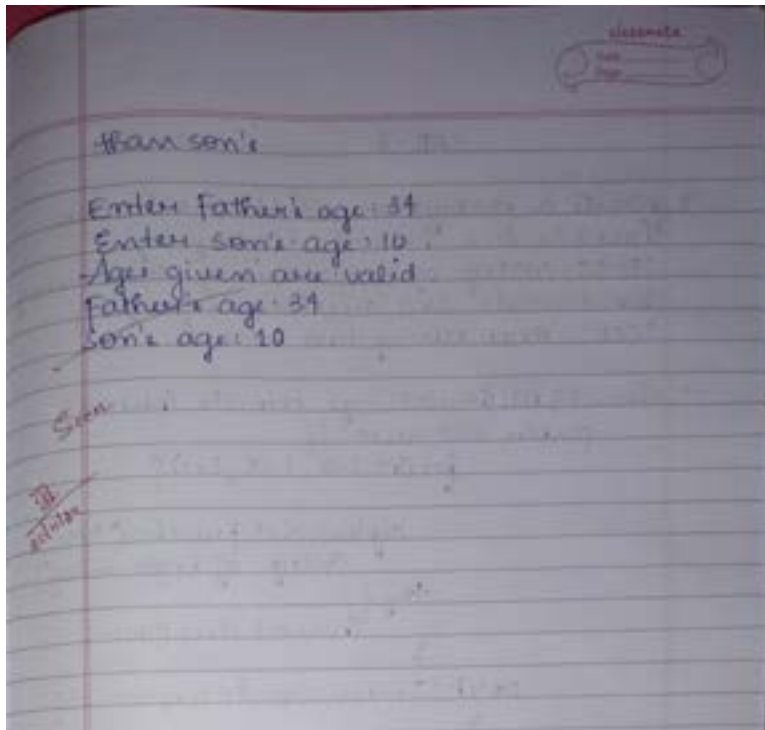 classmate
Date
Page
than son's
Enter Father's age: 34
Enter son's age: 10
Ages given are valid
Father's age: 34
son's age: 10
Seen